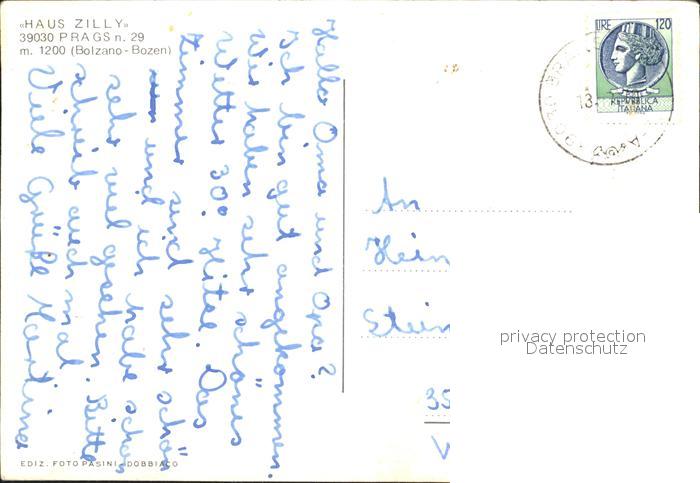 «HAUS ZILLY»
39030 PRAGS n. 29
m. 1200 (Bolzano-Bozen)
Hallo Oma und Opa?
Ich bin gut angekommen.
Wir haben sehr schönes
Wetter 30° Hitze. Das
Zimmer sind sehr schön
und ich habe schon
sehr viel gesehen. Bitte
schreib auch mal.
Viele Grüße Martina
EDIZ. FOTO PASINI - DOBBIACO
LIRE 120
REPUBBLICA
ITALIANA
13.
An
Hein
Stein
35
privacy protection
Datenschutz